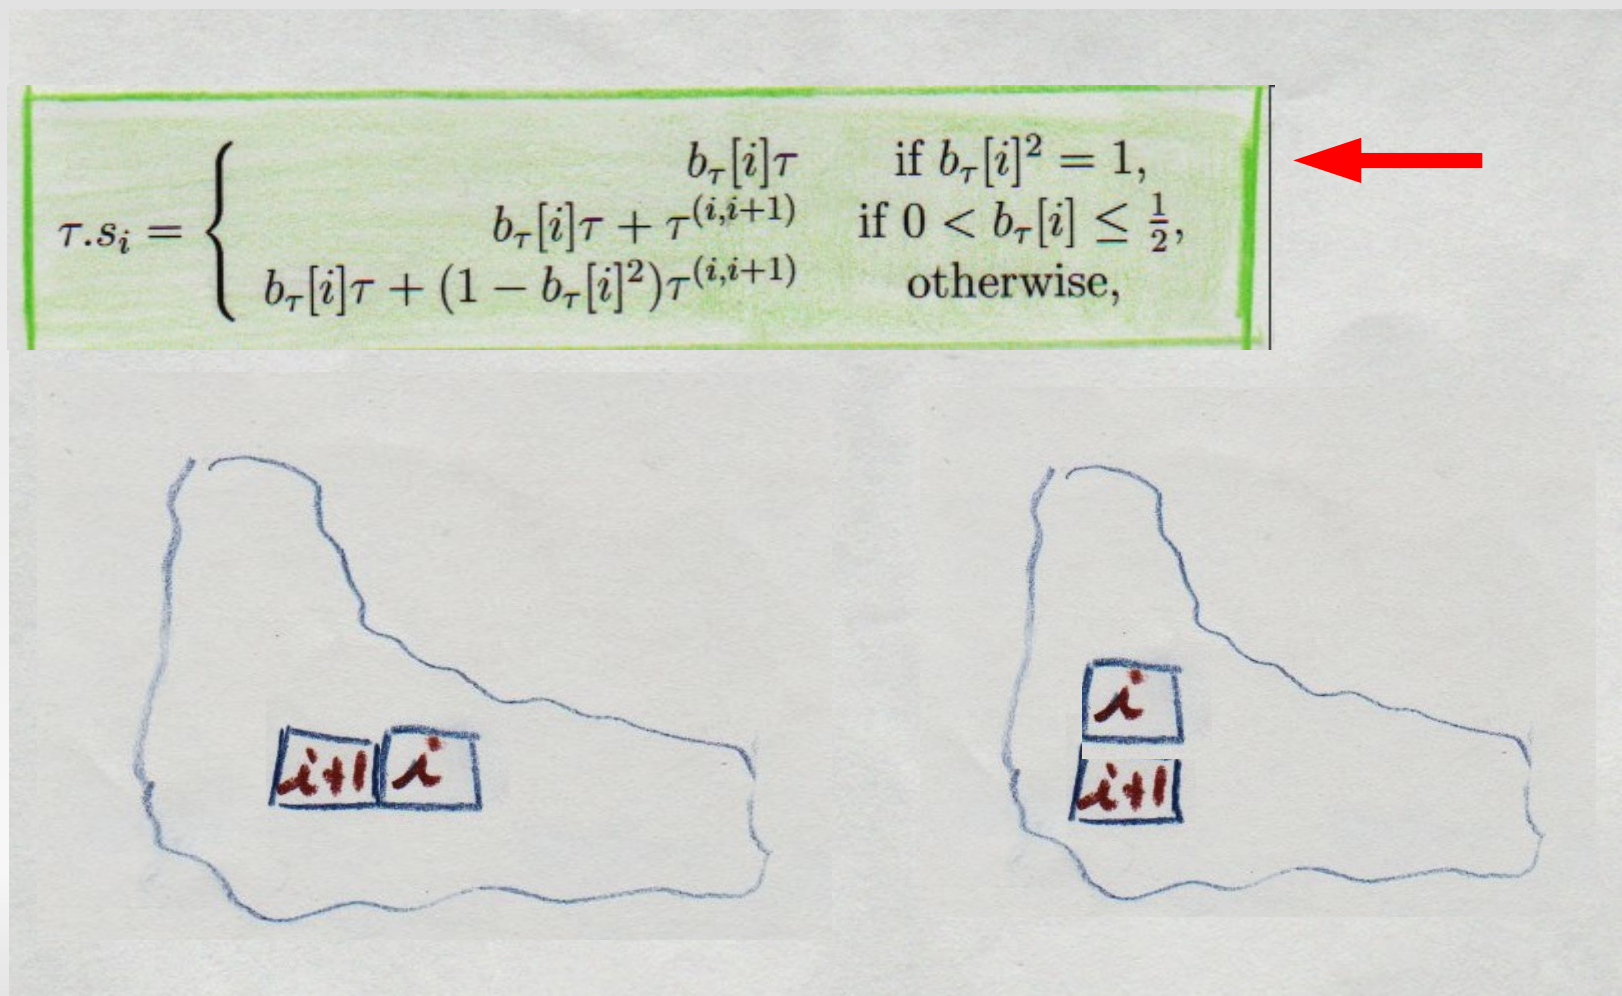 τ.s_i = { b_τ[i]τ if b_τ[i]² = 1,
b_τ[i]τ + τ^(i,i+1) if 0 < b_τ[i] ≤ 1/2,
b_τ[i]τ + (1 − b_τ[i]²)τ^(i,i+1) otherwise,
i+1 i
i
i+1